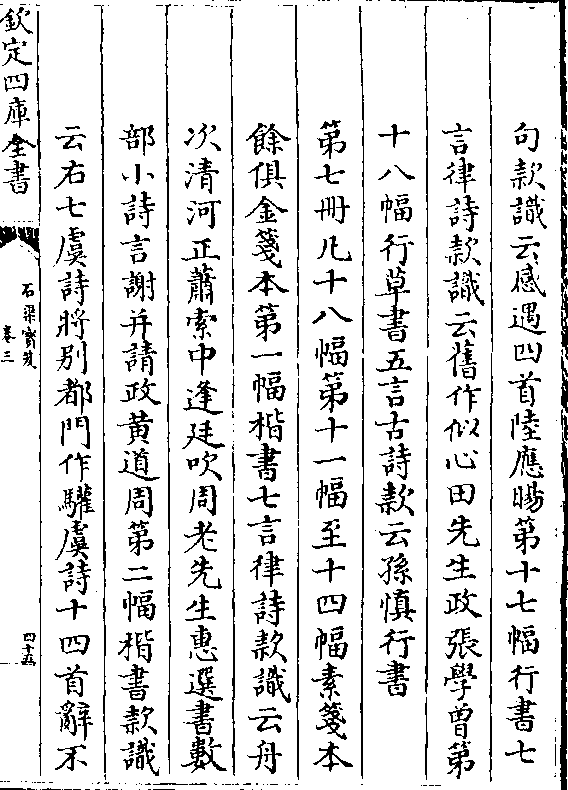 句款識云感遇四首陸應暘第十七幅行書七
言律詩款識云舊作似心田先生政張學曾第
十八幅行草書五言古詩款云孫慎行書
第七冊凡十八幅第十一幅至十四幅素箋本
餘俱金箋本第一幅楷書七言律詩款識云舟
次清河正蕭索中逢廷吹周老先生惠選書數
部小詩言謝并請政黄道周第二幅楷書款識
云右七虞詩將别都門作驩虞詩十四首辭不
欽定四庫全書
石渠寳笈
卷三
四十五